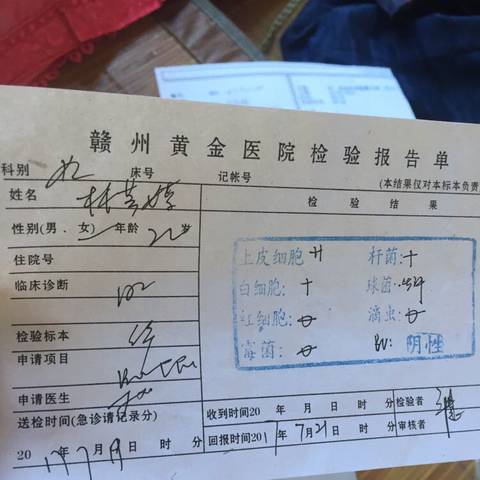 赣州黄金医院检验报告单
科别 床号 记帐号 (本结果仅对本标本负责
姓名 林芸婷 检验结果
性别(男、女) 年龄 22岁
住院号
上皮细胞: 杆菌:+
临床诊断
白细胞:+ 球菌:
红细胞: 滴虫:
检验标本
霉菌: BV:阴性
申请项目
申请医生
送检时间(急诊请记录分) 收到时间20 年 月 日 时 分 检验者
2017年7月 日 时 分 回报时间2017年7月21日 时 分 审核者